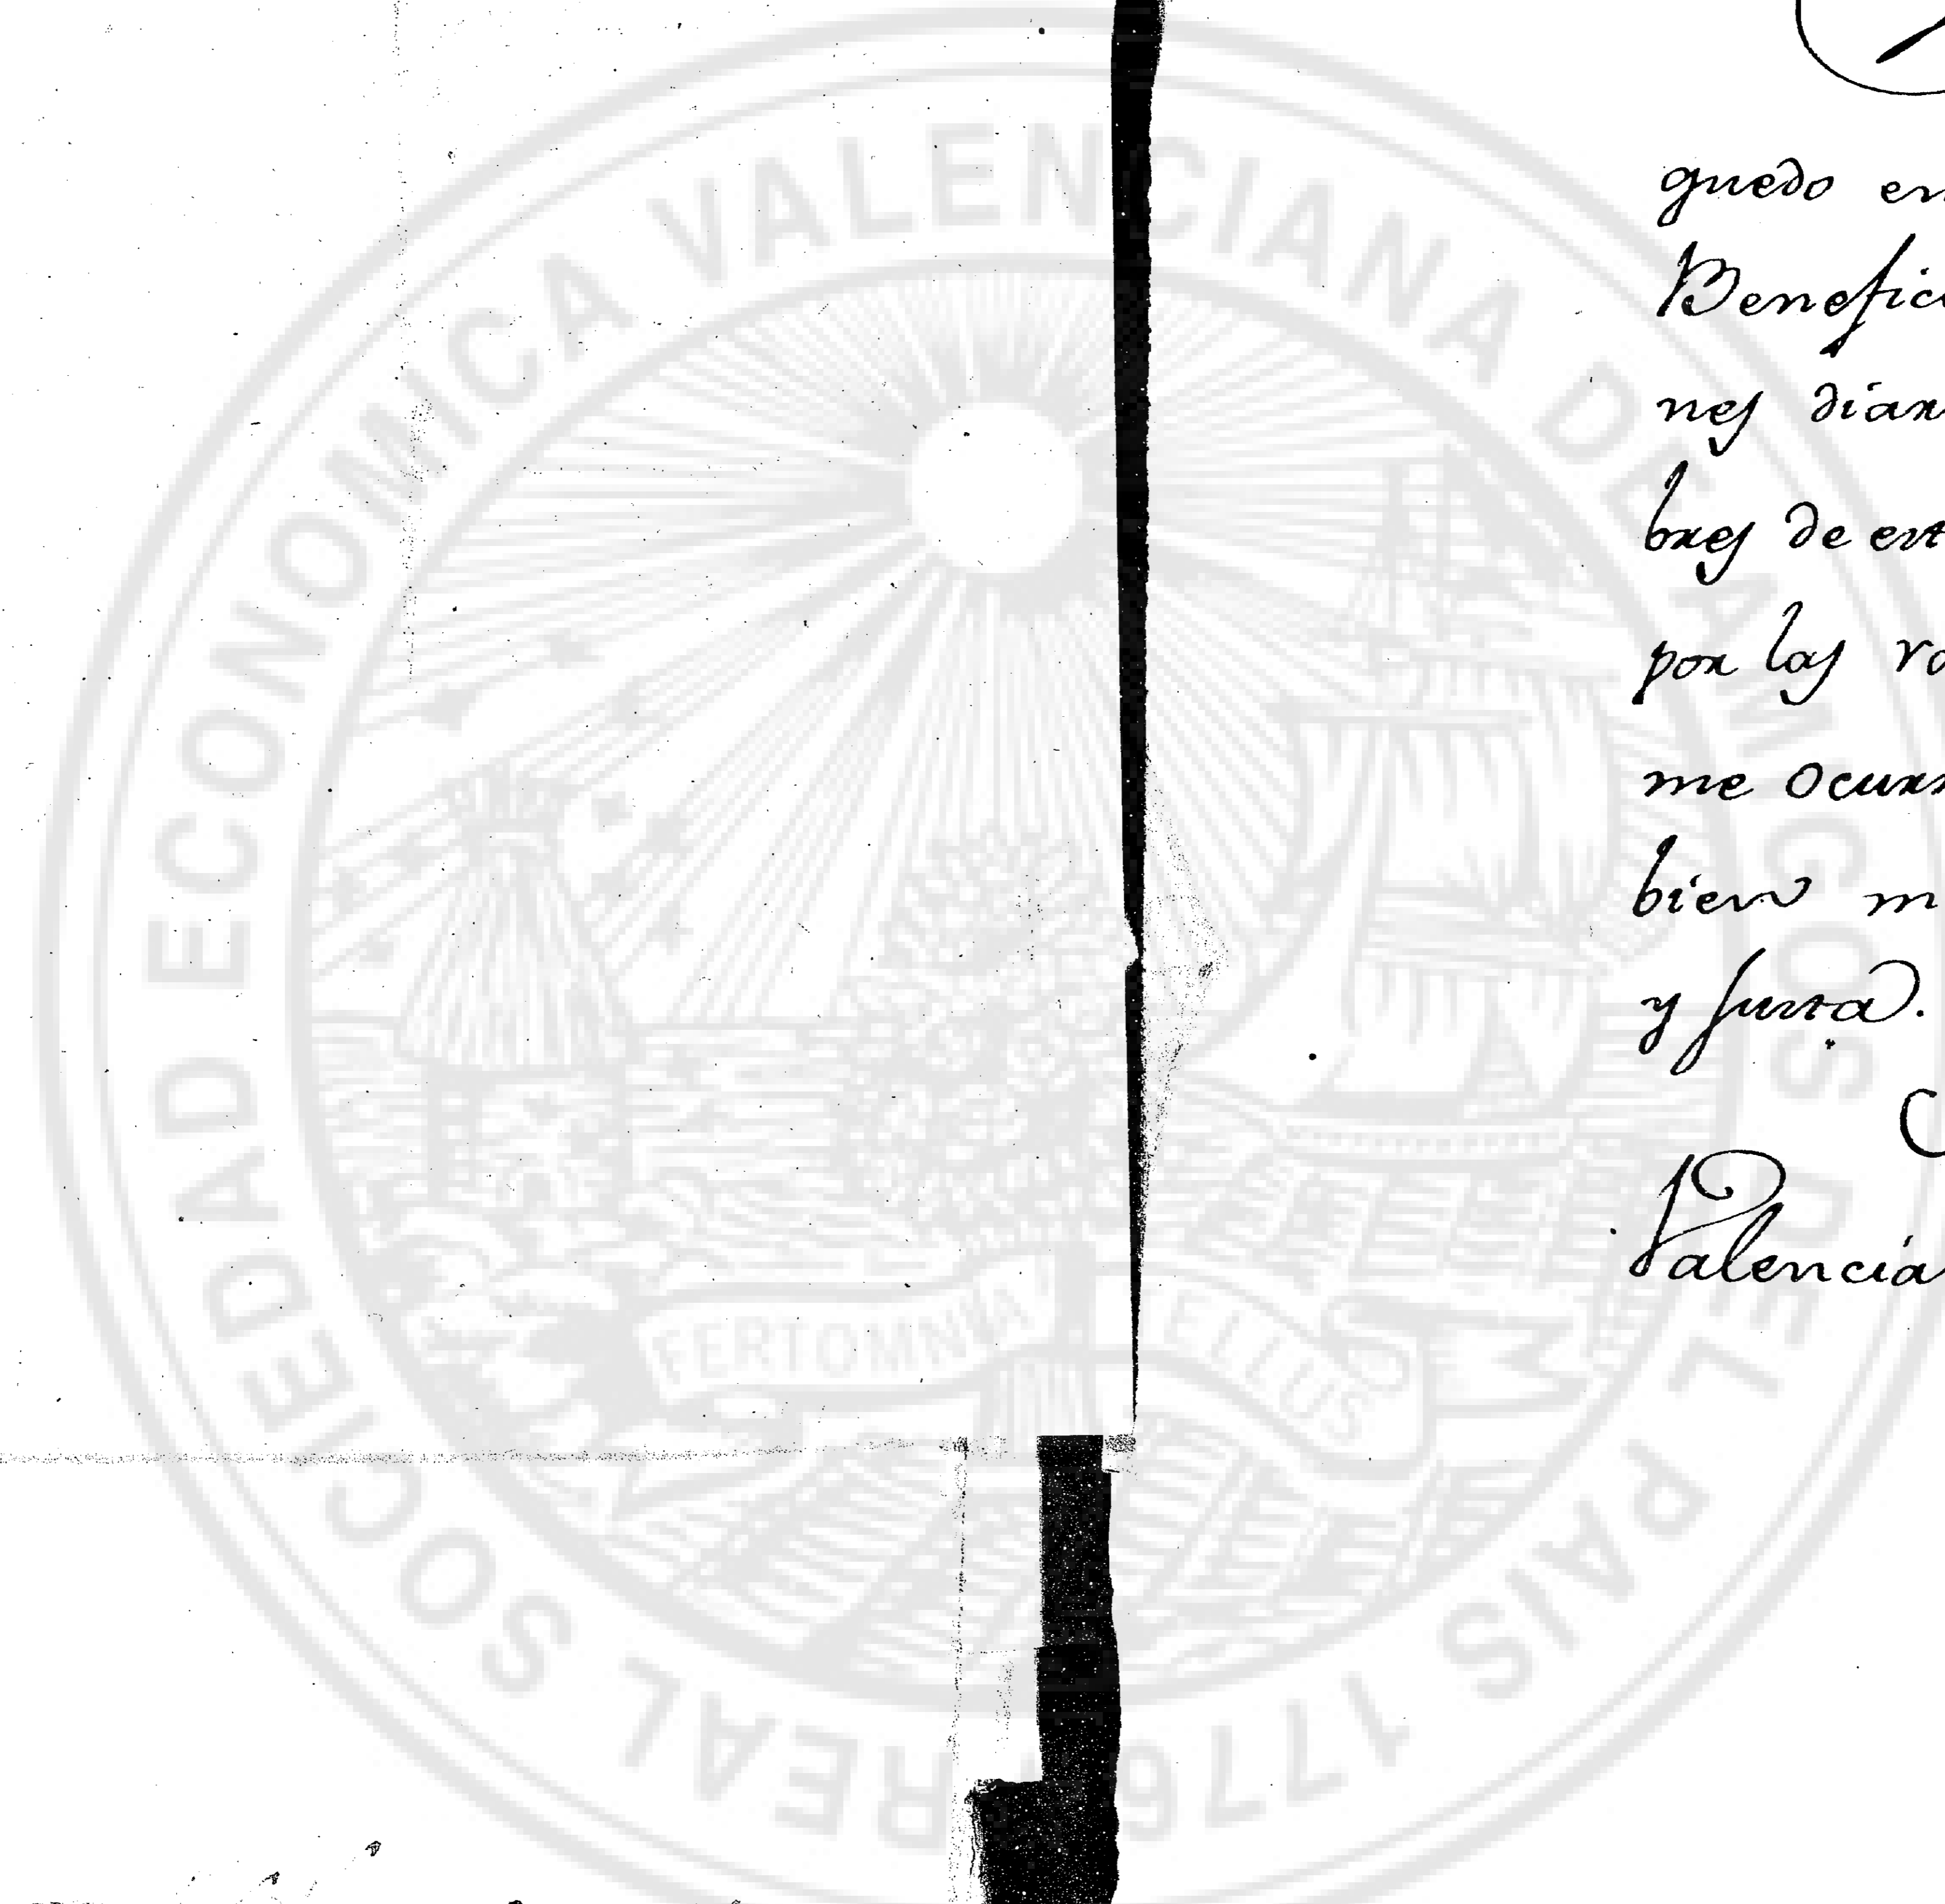 REAL SOCIEDAD ECONOMICA VALENCIANA DE AMIGOS DEL PAIS 1776
FERT OMNIA TELLUS
quedo en
Benefic
nes diar
bres de est
por las ra
me ocurr
bien m
y justa.
Valencia